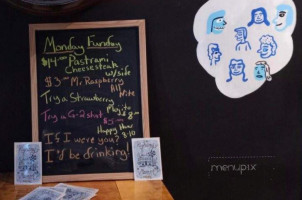 Monday Funday
$14.00 Pastrami
Cheesesteak
w/side
$3 Mr Raspberry
All
Nite
Try a Strawberry
Mojito
Try a G-2 shot
$5
Happy Hour
8-10
If I were you?
I'd be drinking!
menupix